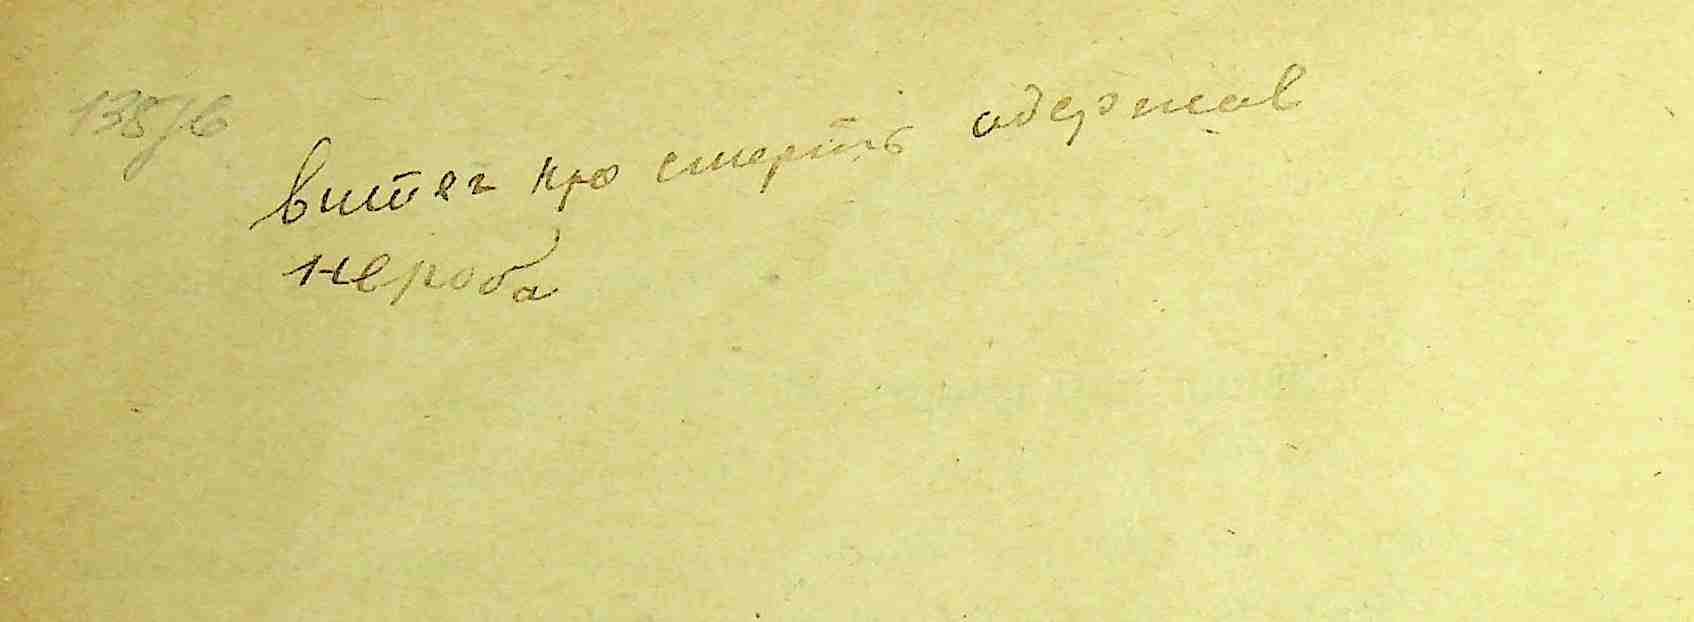 135/6
витяг про смерть одержав
Нероба